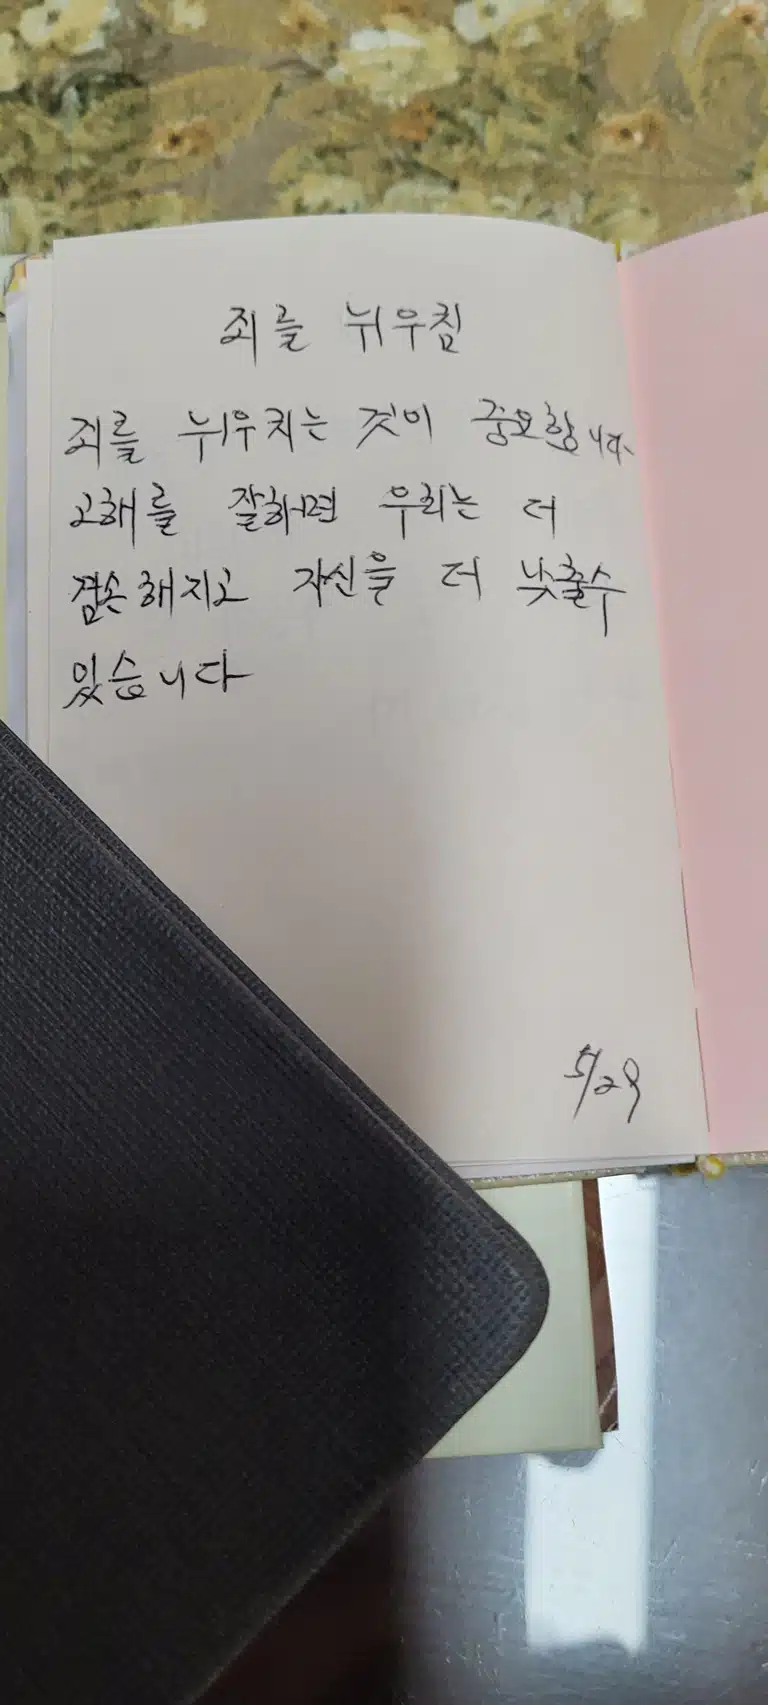 죄를 뉘우침
죄를 뉘우치는 것이 중요합니다.
고해를 잘하면 우리는 더
겸손해지고 자신을 더 낮출수
있습니다
5/29